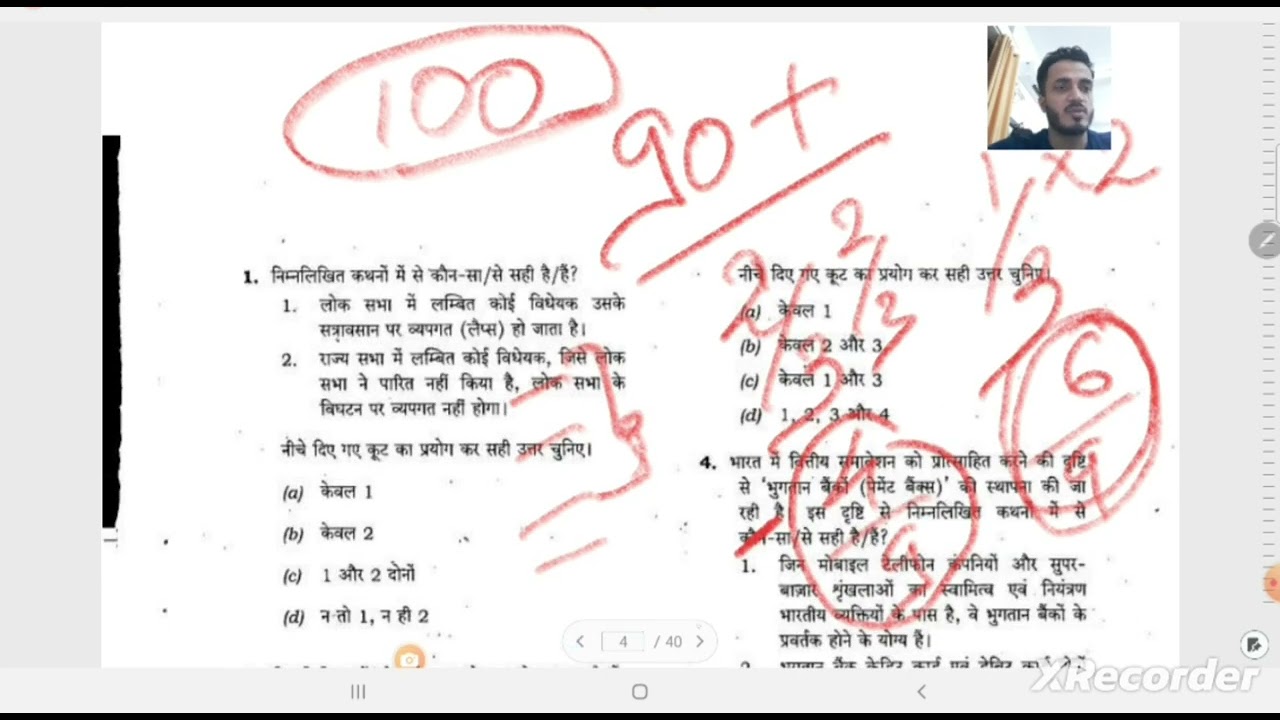 100
90+
1 × 2
1/3
2/3
2/3
6/9
4/9
1. निम्नलिखित कथनों में से कौन-सा/से सही है/हैं?
1. लोक सभा में लम्बित कोई विधेयक उसके
सत्रावसान पर व्यपगत (लैप्स) हो जाता है।
2. राज्य सभा में लम्बित कोई विधेयक, जिसे लोक
सभा ने पारित नहीं किया है, लोक सभा के
विघटन पर व्यपगत नहीं होगा।
नीचे दिए गए कूट का प्रयोग कर सही उत्तर चुनिए।
(a) केवल 1
(b) केवल 2
(c) 1 और 2 दोनों
(d) न तो 1, न ही 2
नीचे दिए गए कूट का प्रयोग कर सही उत्तर चुनिए।
(a) केवल 1
(b) केवल 2 और 3
(c) केवल 1 और 3
(d) 1, 2, 3 और 4
4. भारत में वित्तीय समावेशन को प्रोत्साहित करने की दृष्टि
से 'भुगतान बैंकों (पेमेंट बैंक्स)' की स्थापना की जा
रही है। इस दृष्टि से निम्नलिखित कथनों में से
कौन-सा/से सही है/हैं?
1. जिन मोबाइल टेलीफोन कंपनियों और सुपर-
बाज़ार शृंखलाओं का स्वामित्व एवं नियंत्रण
भारतीय व्यक्तियों के पास है, वे भुगतान बैंकों के
प्रवर्तक होने के योग्य हैं।
2. भुगतान बैंक क्रेडिट कार्ड एवं डेबिट कार्ड दोनों
4 / 40
XRecorder